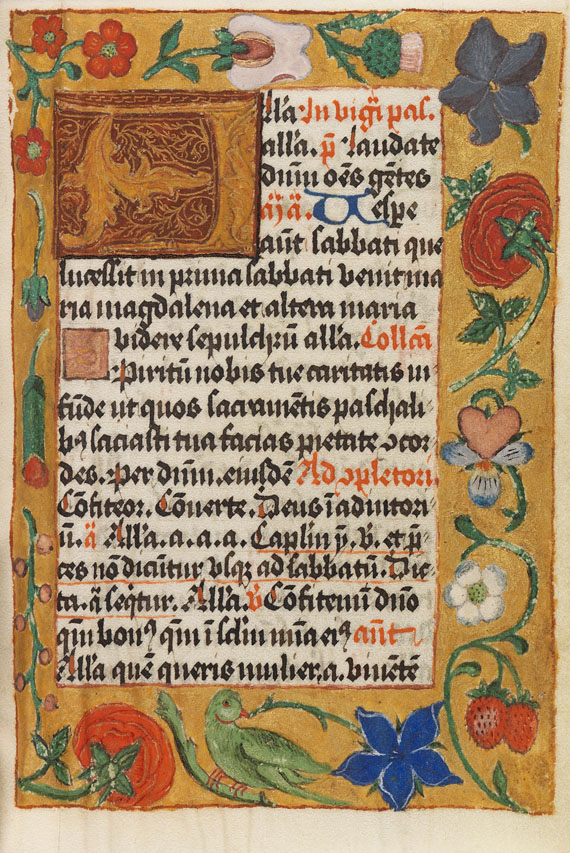 lla In vigi͞ pas.
all'a. p̅. laudate
dn̄m oēs gētes
Vespe
aūt sabbati que
lucessit in prima sabbati venit ma
ria magdalena et altera maria
videre sepulchrū all'a. Collcā
Spiritū nobis tue caritatis in
fūde ut quos sacramētis paschali
bꝫ saciasti tua facias pietate ↄcor
des. Per dn̄m. eiusdē Ad ↄpletori.
Cōfiteor. Cōuerte. Deus ī adiutori
ū. a̅ All'a. a. a. a. Caplm̄ y̅. v. et p̅
ces nō dicūtur vsqꝫ ad sabbatū. Dic
ta. a̅ seq̄tur. All'a. v̅ Cōfitemī dn̄o
qm̄ bonꝰ qm̄ ī sclm̄ mīa eiꝰ ant̄
Alla quē queris mulier. a. viuētē